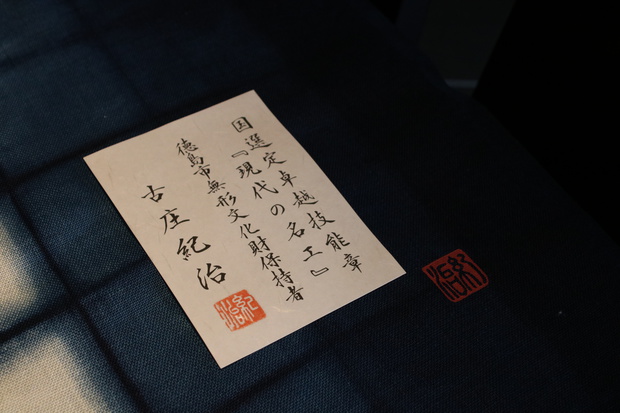 国選定卓越技能章
『現代の名工』
徳島市無形文化財保持者
古庄紀治
紀治
紀治